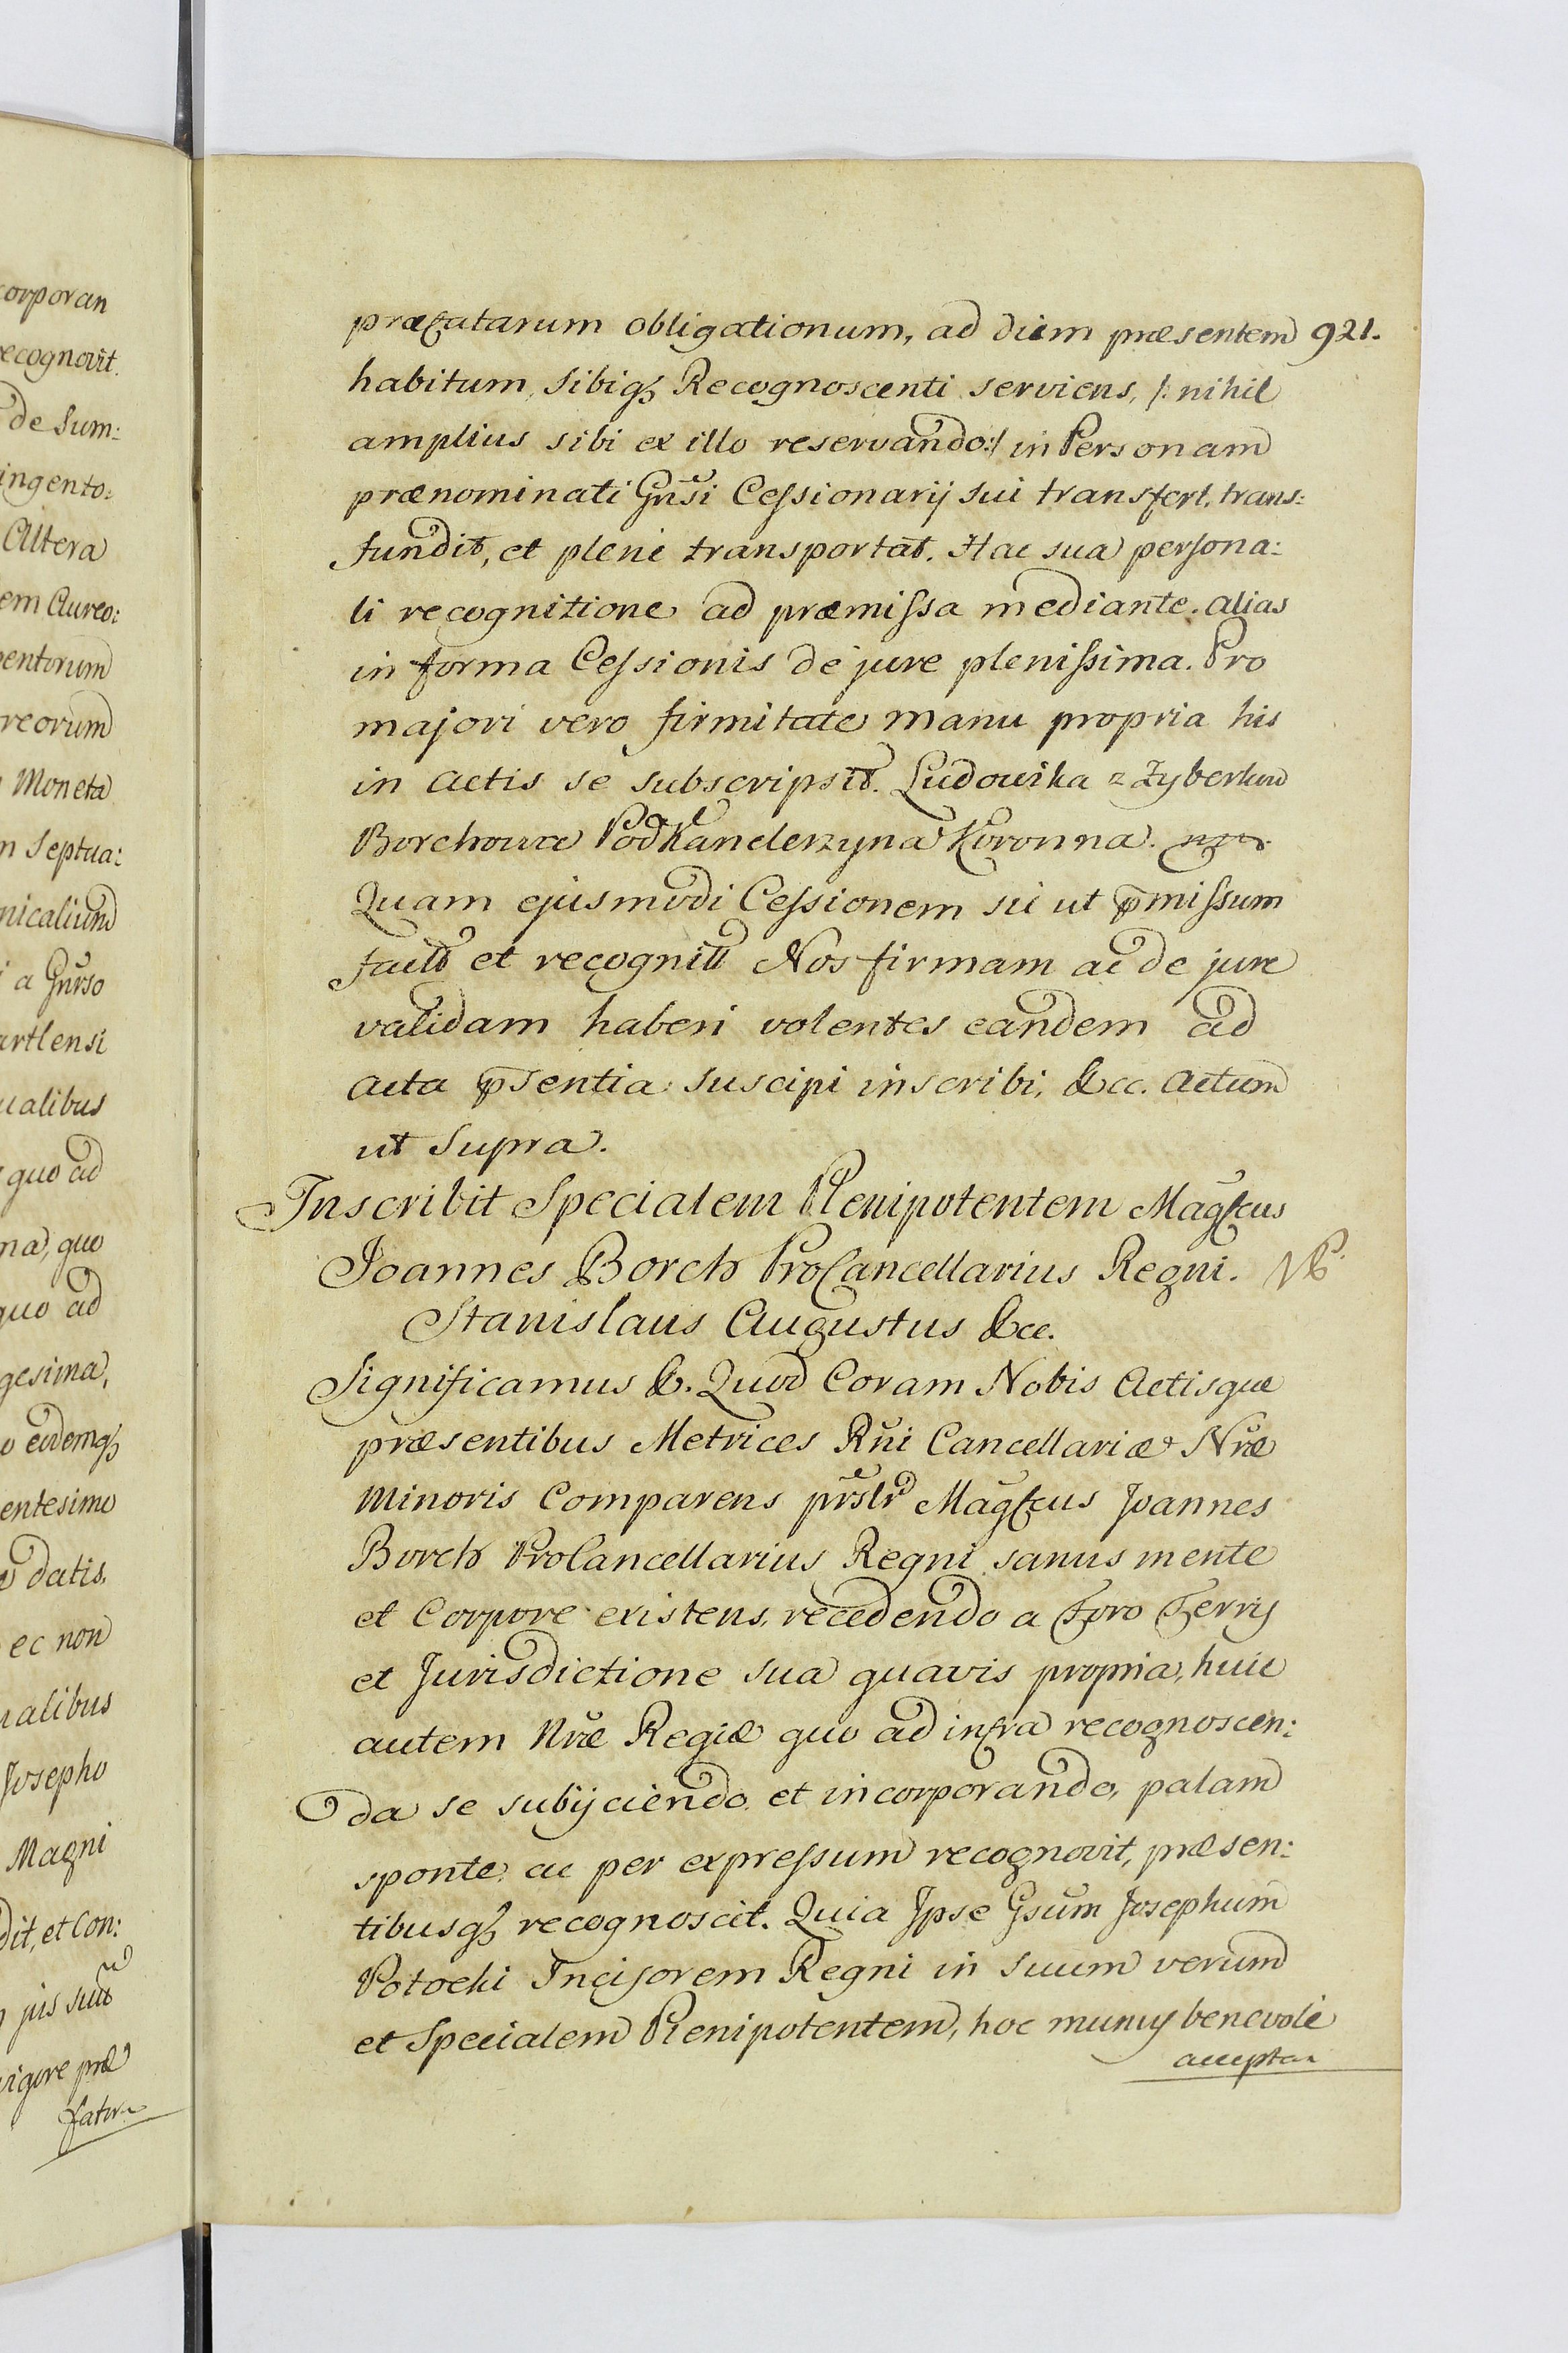 corporan
recognovit.
de Sum:
ingento:
Altera
em Aureo:
entorum
reorum
Moneta
m Septua:
nicalium
a Gnrso
artlensi
ualibus
quo ad
na, quo
quo ad
gesima,
eodemq3
entesimo
datis,
ec non
ualibus
Josepho
Magni
dit, et Con:
jus suu
vigore præ
fatar
921.
præfatarum obligationum, ad diem præsentem
habitum, sibiq3 Recognoscenti serviens, /: nihil
amplius sibi ex illo reservando:/ in Personam
prænominati Gnsi Cessionarij sui transfert, trans:
fundit, et plene transportat. Hac sua persona:
li recognitione ad præmissa mediante. alias
in forma Cessionis de jure plenissima. Pro
majori vero firmitate manu propria his
in actis se subscripsit. Ludowika z Zyberkow
Borchowa Podkanclerzyna Koronna. mpr.
Quam ejusmodi Cessionem sic ut p̄missum
factã et recognitã Nos firmam ac de jure
validam haberi volentes eandem ad
acta p̄sentia suscipi inscribi, &cc. Actum
ut Supra.
Inscribit Specialem Plenipotentem Magfcus
Joannes Borch ProCancellarius Regni. NB.
Stanislaus Augustus &cc.
Significamus &. Quod Coram Nobis Actisque
præsentibus Metrices Rñi Cancellariæ Nræ
Minoris Comparens prslr Magfcus Joannes
Borch ProCancellarius Regni sanus mente
et Corpore existens, recedendo a Foro Terrij
et Jurisdictione sua quavis propria, huic
autem Nræ Regiæ quo ad infra recognoscen:
da se subijciendo et incorporando, palam
sponte ac per expressum recognovit, præsen:
tibusq3 recognoscit. Quia Ipse Gsum Josephum
Potocki Incisorem Regni in suum verum
et Specialem Plenipotentem, hoc munus benevole
acceptan